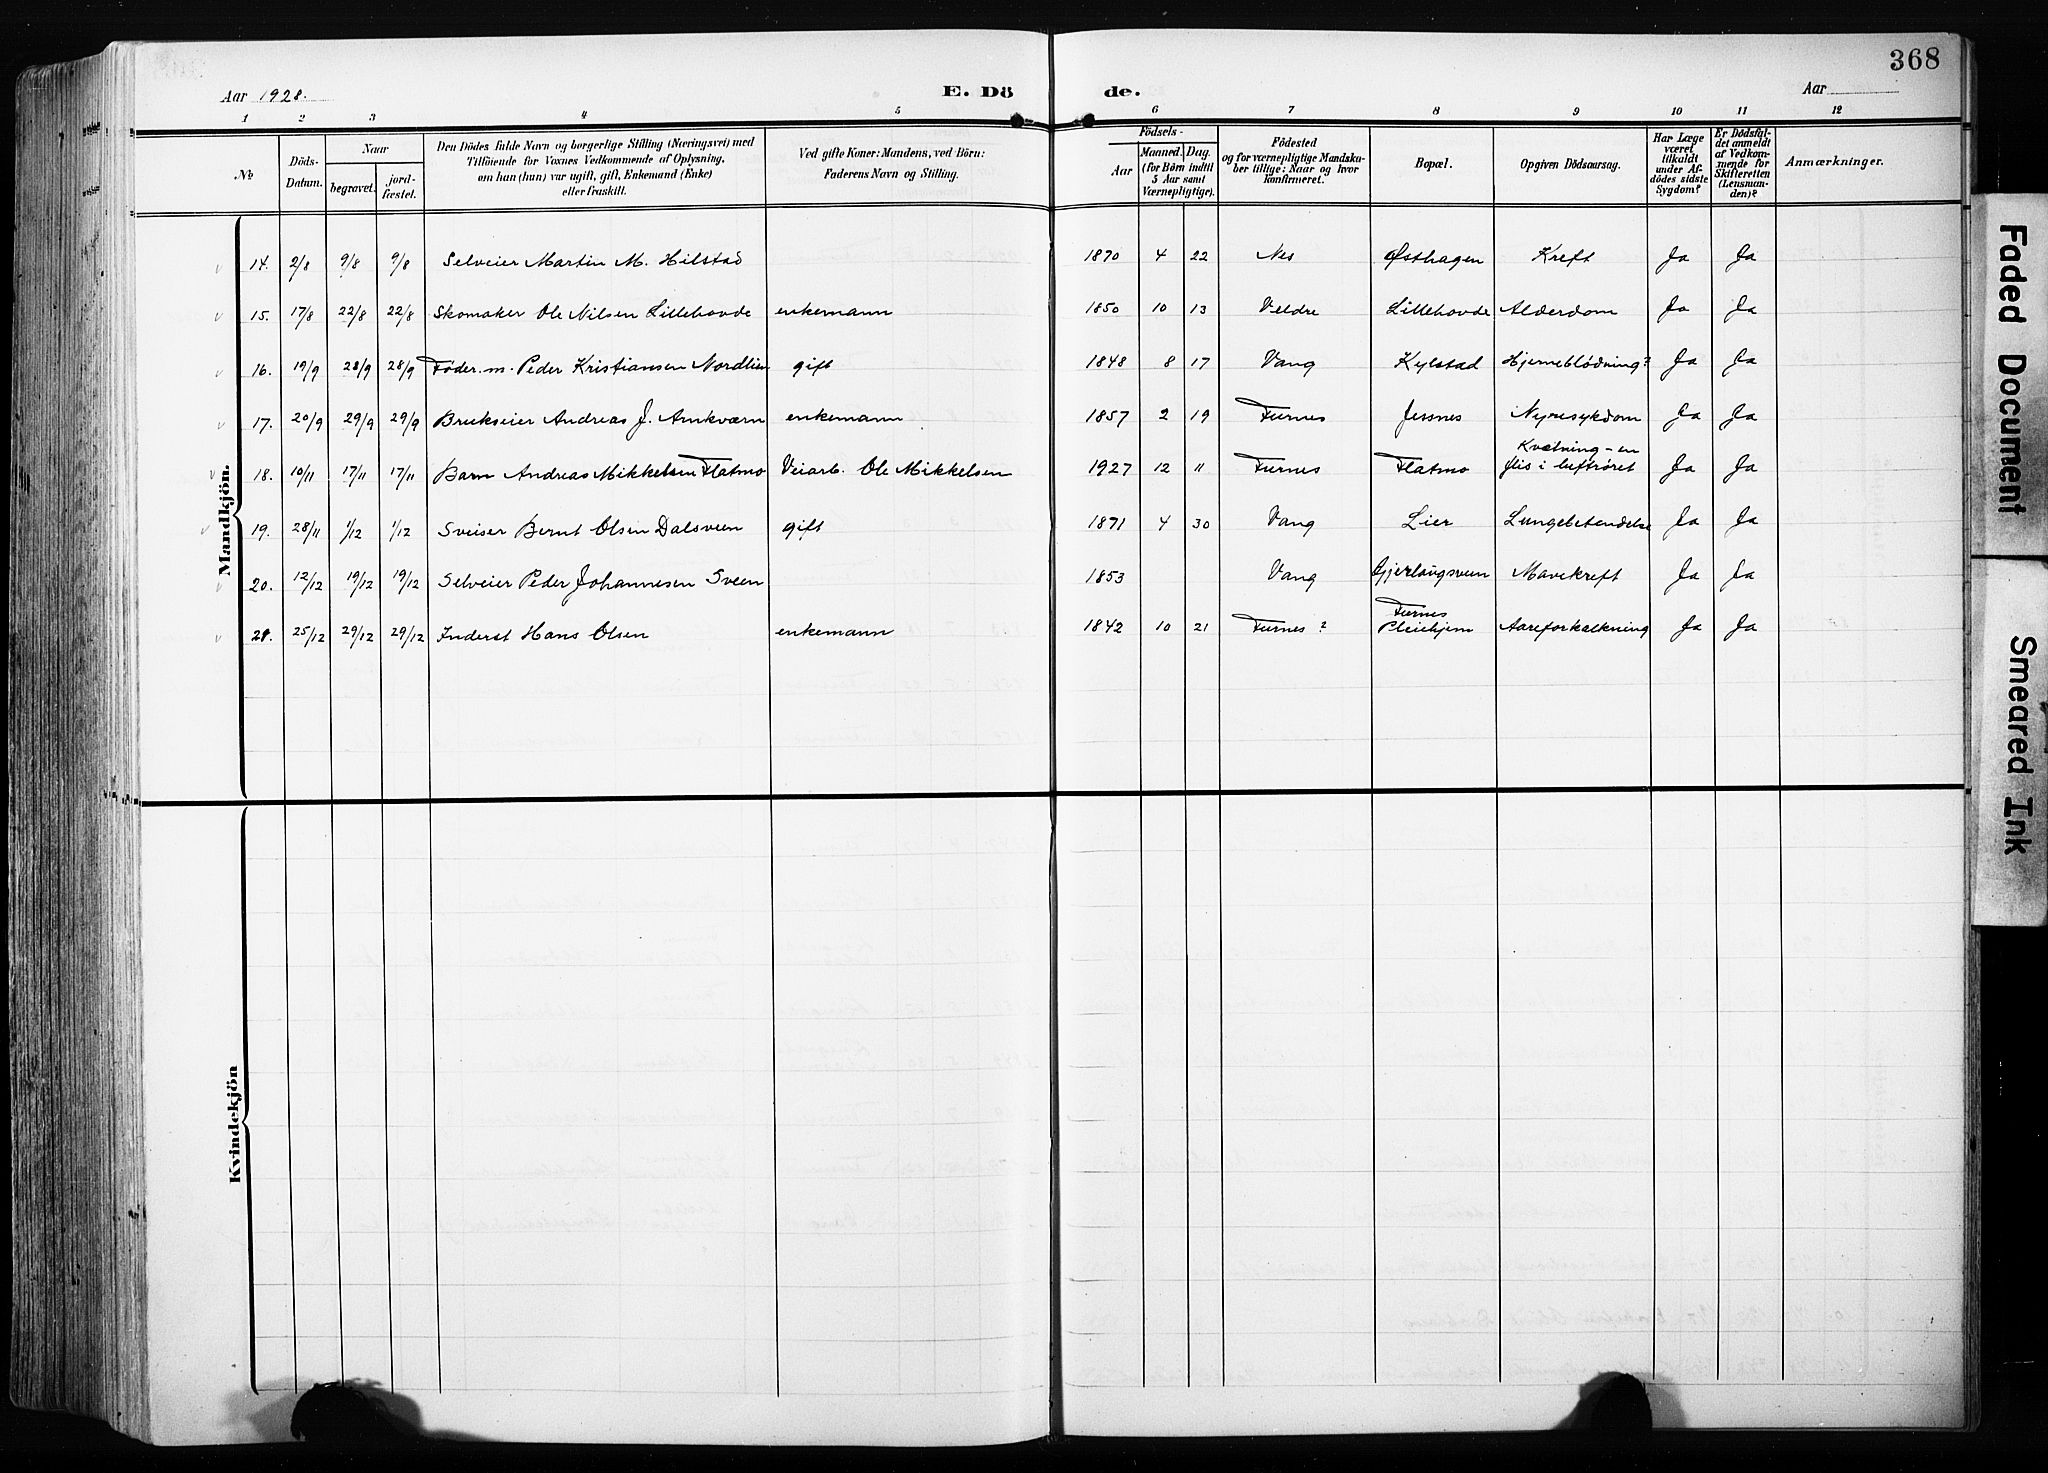 368
Aar 1928. E. Dö de. Aar
1 2 3 4 5 6 7 8 9 10 11 12
No
Döds-Datum.
Naar
begravet.
jordfæstet.
Den Dödes fulde Navn og borgerlige Stilling (Næringsvei) med
Tilföiende for Voxnes Vedkommende af Oplysning,
om han (hun) var ugift, gift, Enkemand (Enke)
eller fraskilt.
Ved gifte Koner: Mandens, ved Börn:
Faderens Navn og Stilling.
Födsels-
Aar
Maaned. Dag.
(for Børn indtil
5 Aar samt
Værnepligtige).
Födested
og for værnepligtige Mandska-
ber tillige: Naar og hvor
konfirmeret.
Bopæl.
Opgiven Dödsaarsag.
Har Læge
været
tilkaldt
under Af-
dödes sidste
Sygdom?
Er Dödsfal-
det anmeldt
af Vedkom-
mende for
Skifteretten
(Lensman-
den)?
Anmærkninger.
Mandkjön.
14. 2/8 9/8 9/8 Selveier Martin M. Hilstad 1870 4 22 Nes Østhagen Kreft Ja Ja
15. 17/8 22/8 22/8 Skomaker Ole Nilsen Lillehovde enkemann 1850 10 13 Veldre Lillehovde Alderdom Ja Ja
16. 19/9 28/9 28/9 Føder.m. Peder Kristiansen Nordlien gift 1848 8 17 Vang Kylstad Hjerneblødning? Ja Ja
17. 20/9 29/9 29/9 Brukseier Andreas J. Arnkværn enkemann 1857 2 19 Furnes Jessnes Nyresykdom Ja Ja
18. 10/11 17/11 17/11 Barn Andreas Mikkelsen Flatmo Veiarb. Ole Mikkelsen 1927 12 11 Furnes Flatmo Kvælning - en flis i luftrøret Ja Ja
19. 28/11 1/12 1/12 Sveiser Bernt Olsen Dalsveen gift 1871 4 30 Vang Lier Lungebetendelse Ja Ja
20. 12/12 19/12 19/12 Selveier Peder Johannesen Sveen 1853 Vang Gjerlaugsveen Mavekreft Ja Ja
21. 25/12 29/12 29/12 Inderst Hans Olsen enkemann 1842 10 21 Furnes? Furnes Pleiehjem Aareforkalkning Ja Ja
Kvindekjön
Faded Document
Smeared Ink